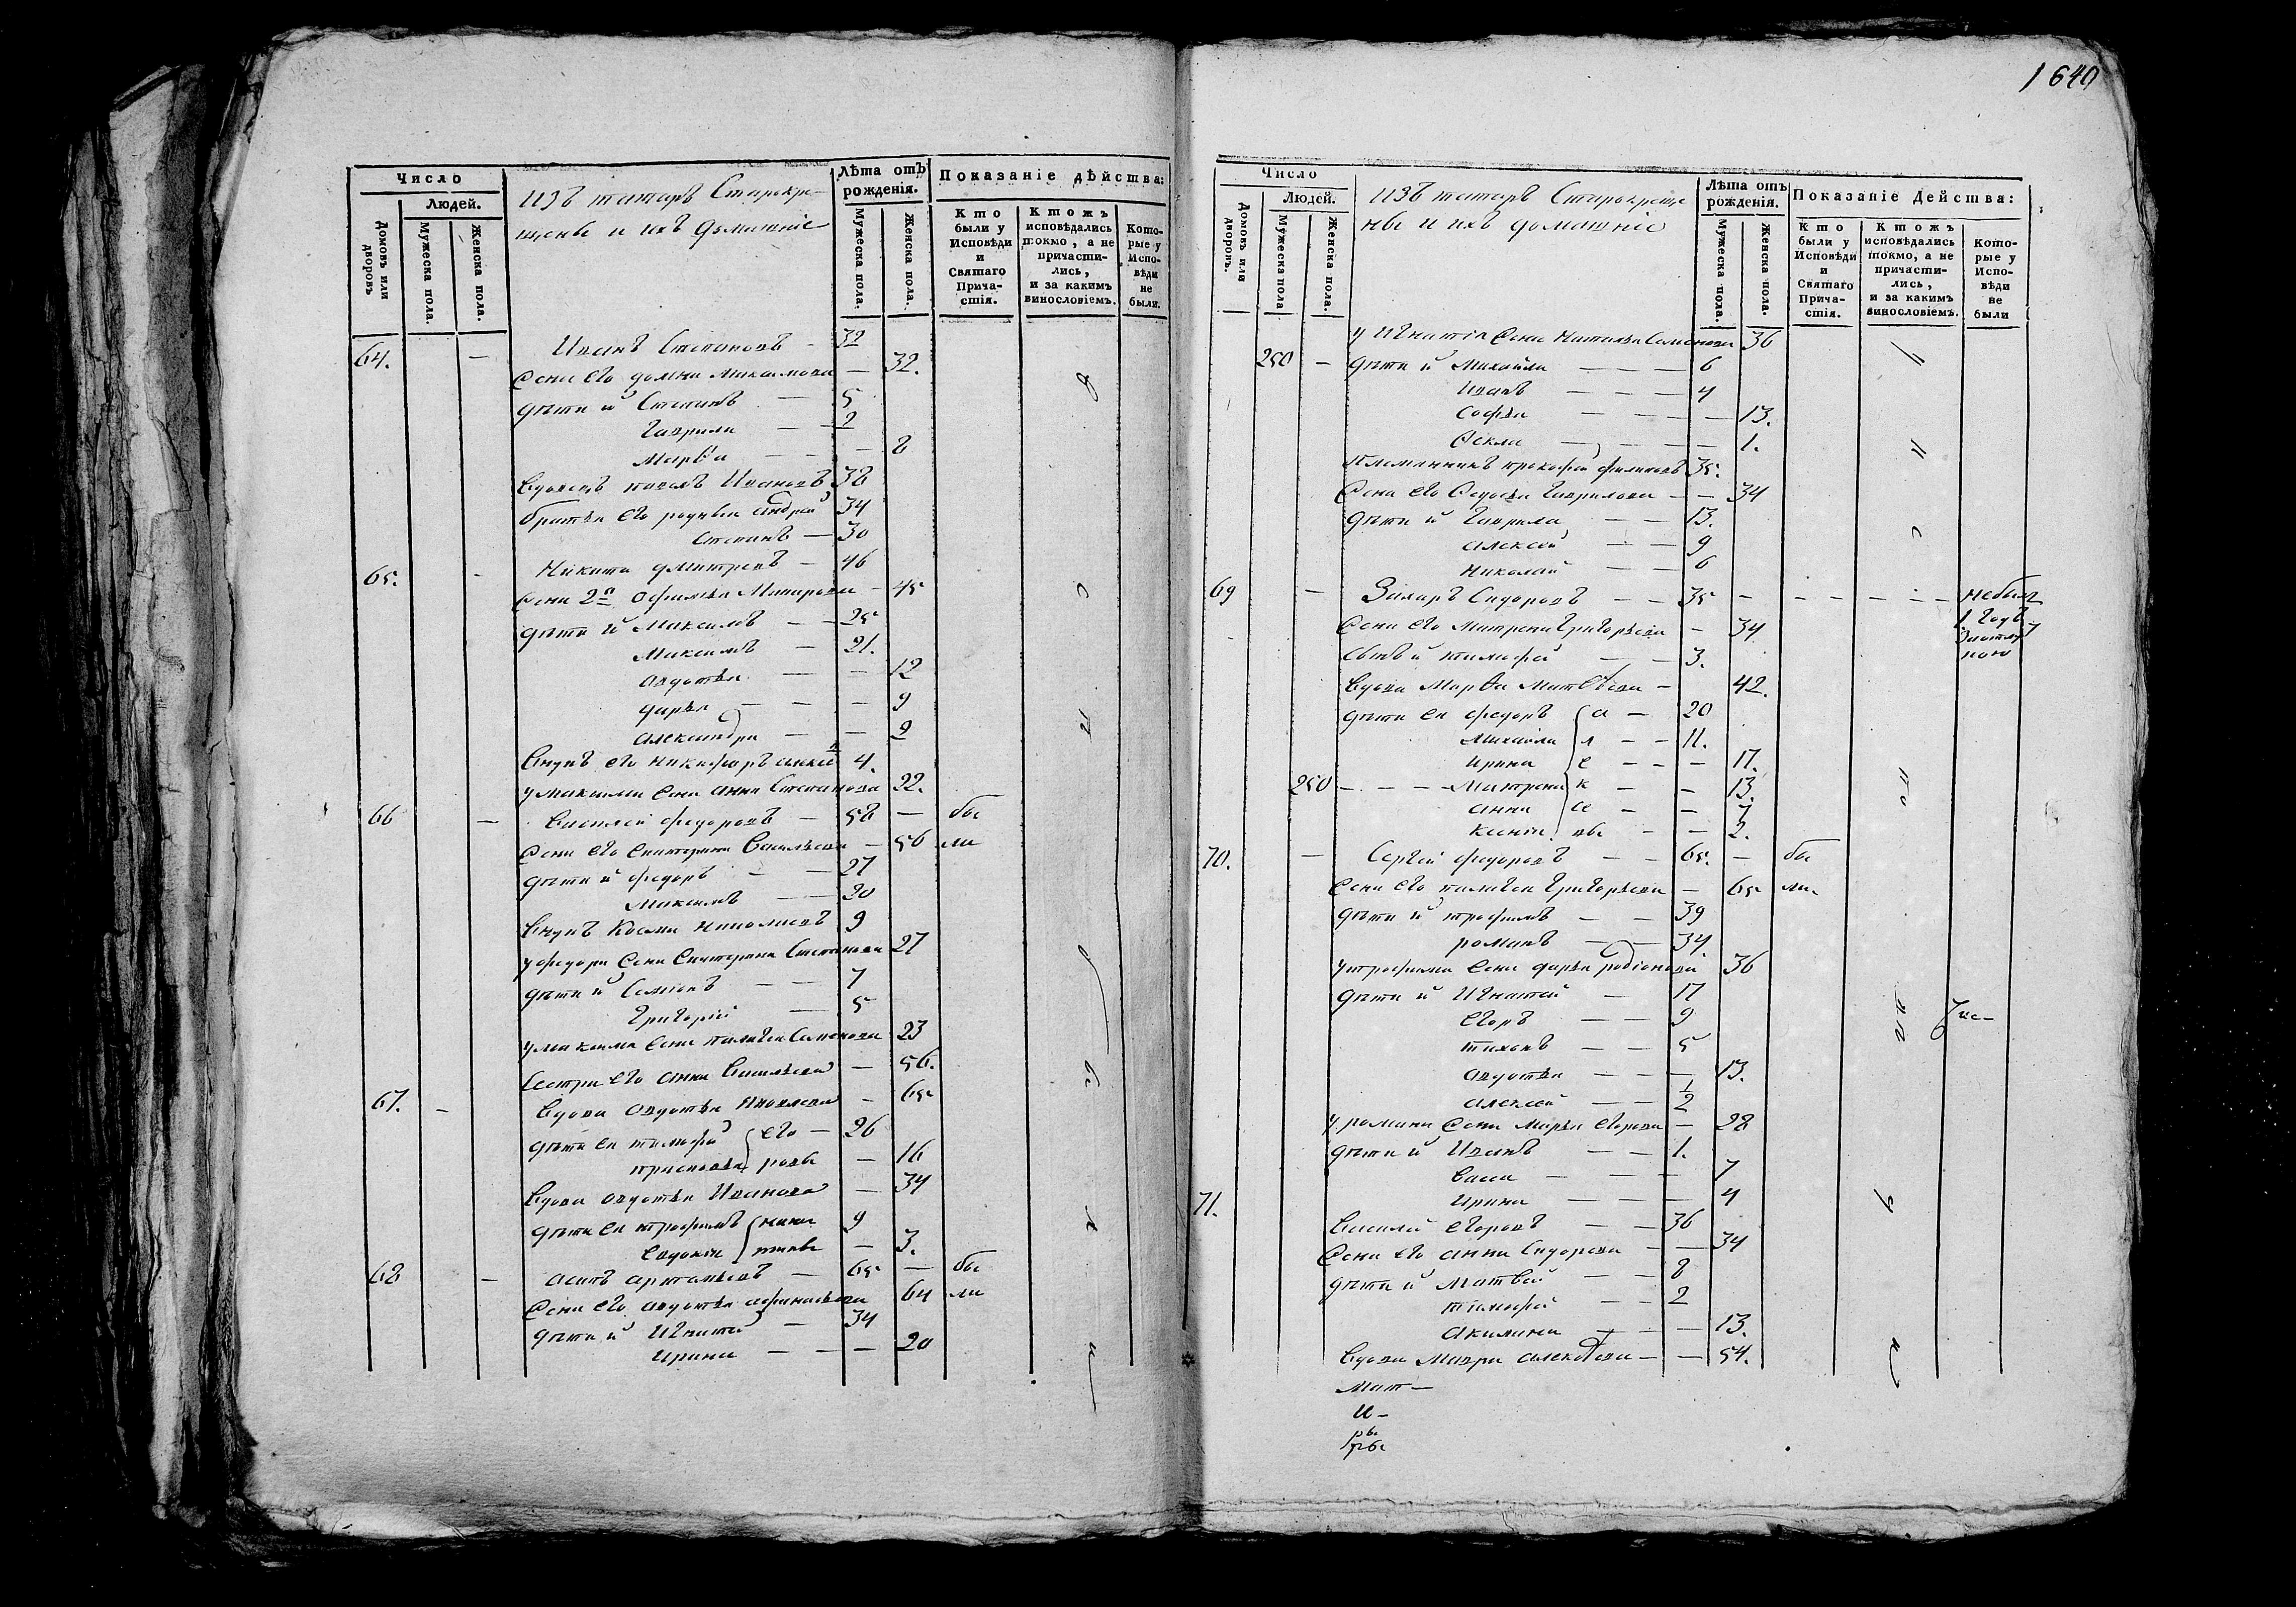 1640
Число
Людей.
Домовъ или дворовъ
Мужеска пола.
Женска пола.
Изъ татаръ Старокре-
щены и ихъ домашніе
Лѣта отъ рожденія.
Мужеска пола.
Женска пола.
Показаніе дѣйства:
Кто были у Исповѣди и Святаго Прича-стія.
Ктожъ исповѣдались токмо, а не причасти-лись, и за какимъ винословіемъ.
Кото-рые у Испо-вѣди не были.
64. — Иванъ Степановъ — 32
Жена его Домна Максимова — 32.
дѣти и Степанъ — 5
Гаврила — 2
Марѳа — 8
Вдовецъ Павелъ Ивановъ 38
братья его родныи Андрей 34
Степанъ — 30
65. - Никита Дмитревъ — 46
Жена 2я Офимья Макарова — 45
дѣти и Максимъ — 25
Максимъ — 21.
Авдотья — 12
Дарья — 9
Александра — 2
Внукъ его Никифоръ 4.
у Максима жена Анна Степанова 22.
66 — Василей Федоровъ — 58 — бы
Жена его Екатерина Васильева — 56 ли
дѣти и Федоръ — 27
Максимъ — 20
Внукъ Косма Николаевъ 9
у Федора жена Екатерина Степанова 27
дѣти и Семіонъ — 7
Григорій — 5
у Максима жена Палагея Семенова 23
Сестра его Анна Васильева — 56.
67. - Вдова Авдотья Яковлева — 65
дѣти ея Тимофей его — 26
Прасковья ровы — 16
Вдова Авдотья Иванова — 34
дѣти ея Трофимъ ники 9
Евдокія тины — 3.
68 — Асипъ Артамьевъ — 65 — бы
Жена его Авдотья Афанасьева 64 ли
дѣти и Игнатей — 34
Ирина — 20
Число
Людей.
Домовъ или дворовъ.
Мужеска пола
Женска пола.
Изъ татаръ Старокреще
ны и ихъ домашніе
Лѣта отъ рожденія.
Мужеска пола.
Женска пола.
Показаніе Действа:
Кто были у Исповѣди и Святаго Прича-стія.
Ктожъ исповѣдались токмо, а не причасти-лись, и за какимъ винословіемъ.
Кото-рые у Испо-вѣди не были
у Игнатія жена Наталья Семенова 36
250 — дѣти и Михайла — 6
Иванъ — 4
Софья — 13.
Ѳекла — 1.
Племянникъ Прокофей Филиповъ 35.
Жена его Федосья Гаврилова — 34
дѣти и Гаврила — 13.
Алексей — 9
Николай — 6
69 — Захаръ Сидоровъ — 35 — небылъ
Жена его Матрена Григорьева — 34
сынъ и Тимофей — 3.
Вдова Марѳа Матвѣева — 42.
дѣти ея Федоръ а — 20
Михайла л — 11.
Ирина е — 17.
250 — Матрена к — 13.
Анна се — 7
Ксенія вы — 2.
70. — Сергей Федоровъ — 65. — бы
Жена его Палагея Григорьева — 65 ли.
дѣти и Трофимъ — 39
Романъ — 34.
у Трофима жена Дарья Родіонова 36
дѣти и Игнатей — 17
Егоръ — 9
Тихонъ — 5
Авдотья — 13.
Алексей — 1/2
у Романа жена Марья Егорова — 28
дѣти и Иванъ — 1.
Васса — 7
Ирина — 4
71. Василей Егоровъ — 36
Жена его Анна Сидорова — 34
дѣти и Матвей — 8
Тимофей — 2
Акилина — 13.
Вдова Мавра Алексеева — 54.